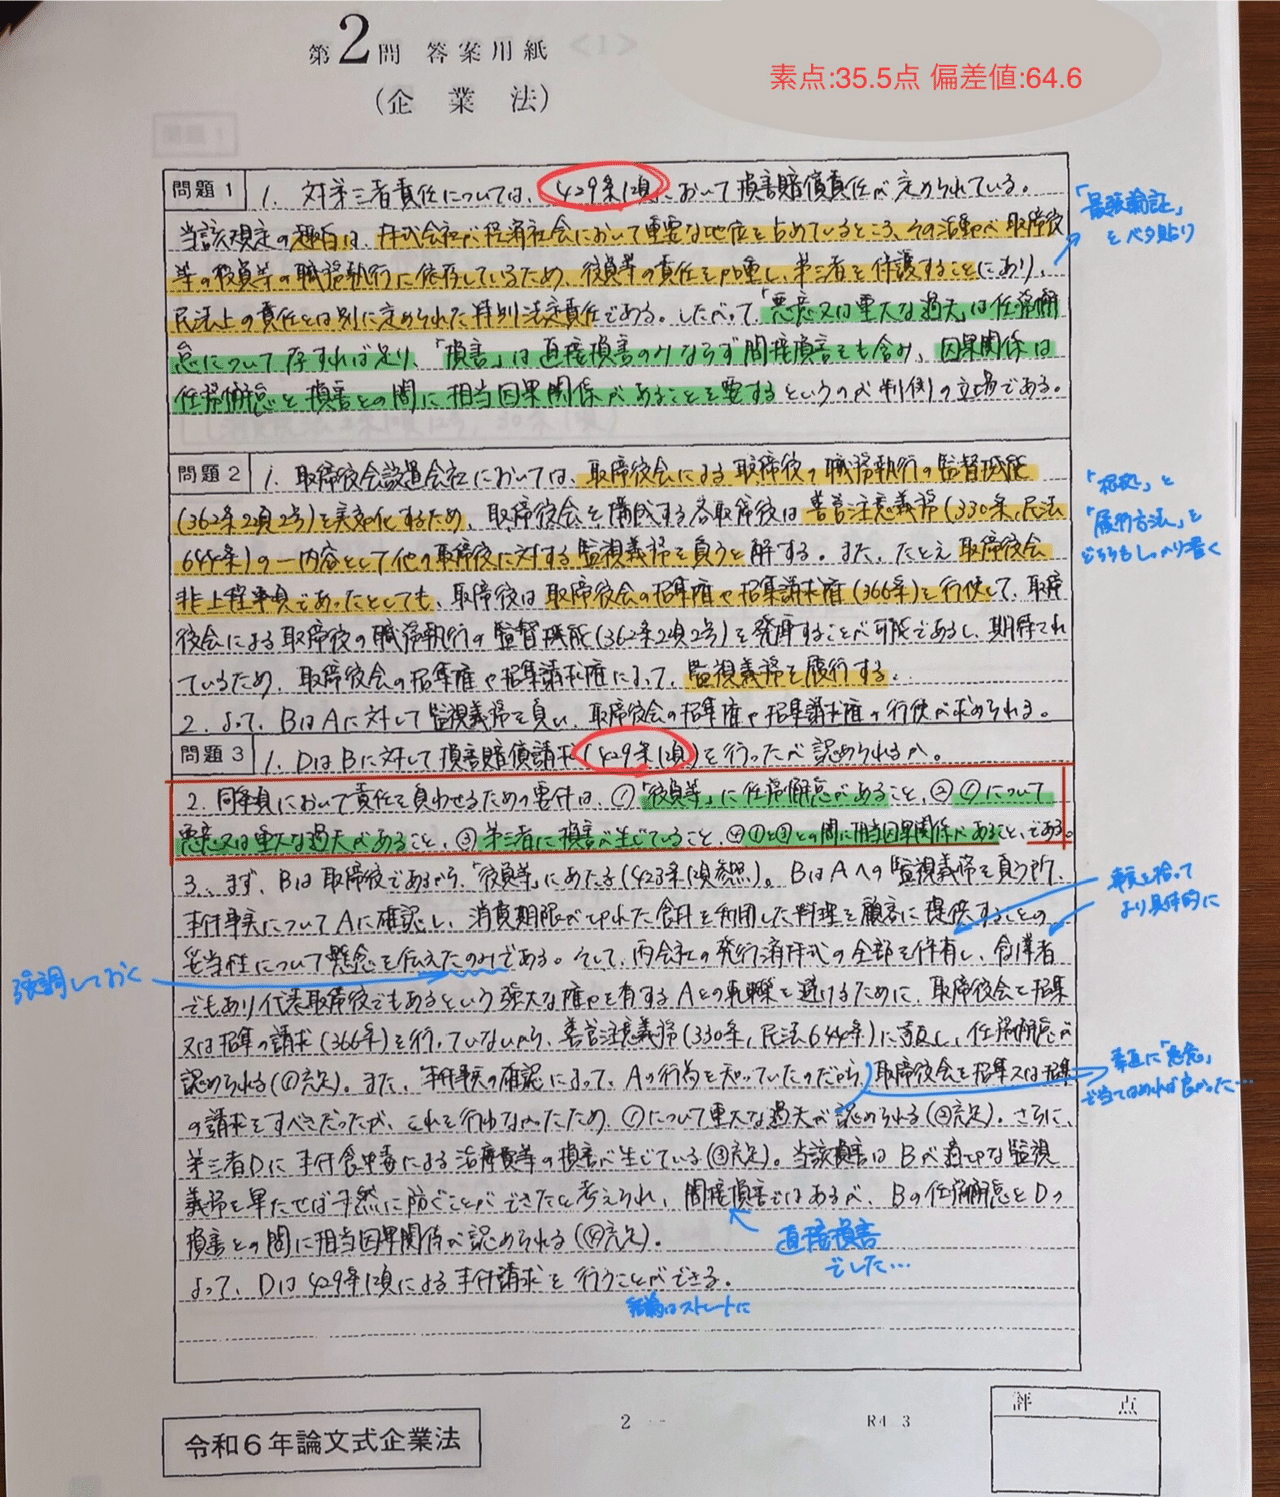 第2問 答案用紙
<1>
(企業法)
素点:35.5点 偏差値:64.6
問題1
問題1
1. 対第三者責任については、429条1項において損害賠償責任が定められている。
当該規定の趣旨は、株式会社が経済社会において重要な地位を占めているところ、その活動が取締役
等の役員等の職務執行に依存しているため、役員等の責任を加重し、第三者を保護することにあり、
民法上の責任とは別に定められた特別法定責任である。したがって、「悪意又は重大な過失」は任務懈
怠について存すれば足り、「損害」は直接損害のみならず間接損害をも含み、因果関係は
任務懈怠と損害との間に相当因果関係があることを要するというのが判例の立場である。
「最狭論証」
をベタ貼り
問題2
1. 取締役会設置会社においては、取締役会による取締役の職務執行の監督機能
(362条2項2号)を実効化するため、取締役会を構成する各取締役は善管注意義務(330条、民法
644条)の一内容として他の取締役に対する監視義務を負うと解する。また、たとえ取締役会
非上程事項であったとしても、取締役は取締役会の招集権や招集請求権(366条)を行使して、取締
役会による取締役の職務執行の監督機能(362条2項2号)を発揮することが可能であるし、期待され
ているため、取締役会の招集権や招集請求権によって、監視義務を履行する。
2. よって、BはAに対して監視義務を負い、取締役会の招集権や招集請求権の行使が求められる。
「根拠」と
「履行方法」を
どちらもしっかり書く
問題3
1. DはBに対して損害賠償請求(429条1項)を行ったが認められるか。
2. 同条項において責任を負わせるための要件は、①「役員等」に任務懈怠があること、②①について
悪意又は重大な過失があること、③第三者に損害が生じていること、④①と③との間に相当因果関係があること、である。
3. まず、Bは取締役であるから、「役員等」にあたる(423条1項参照)。BはAへの監視義務を負う所、
本件事実についてAに確認し、消費期限が切れた食料を利用した料理を顧客に提供することの
妥当性について懸念を伝えたのみである。そして、丙会社の発行済株式の全部を保有し、創業者
でもあり代表取締役でもあるという強大な権力を有するAとの軋轢を避けるために、取締役会を招集
又は招集の請求(366条)を行っていないから、善管注意義務(330条、民法644条)に違反し、任務懈怠が
認められる(①充足)。また、本件事実の確認によって、Aの行為を知っていたのだから、取締役会を招集又は招集
の請求をすべきだったが、これを行わなかったため、①について重大な過失が認められる(②充足)。さらに、
第三者Dに本件食中毒による治療費等の損害が生じている(③充足)。当該損害はBが適切な監視
義務を果たせば未然に防ぐことができたと考えられ、間接損害ではあるが、Bの任務懈怠とDの
損害との間に相当因果関係が認められる(④充足)。
よって、Dは429条1項による本件請求を行うことができる。
事実を拾って
より具体的に
強調しておく
素直に「悪意」
で当てはめれば良かった…
直接損害
でした…
結論はストレートに
令和6年論文式企業法
2
R4 3
評 点